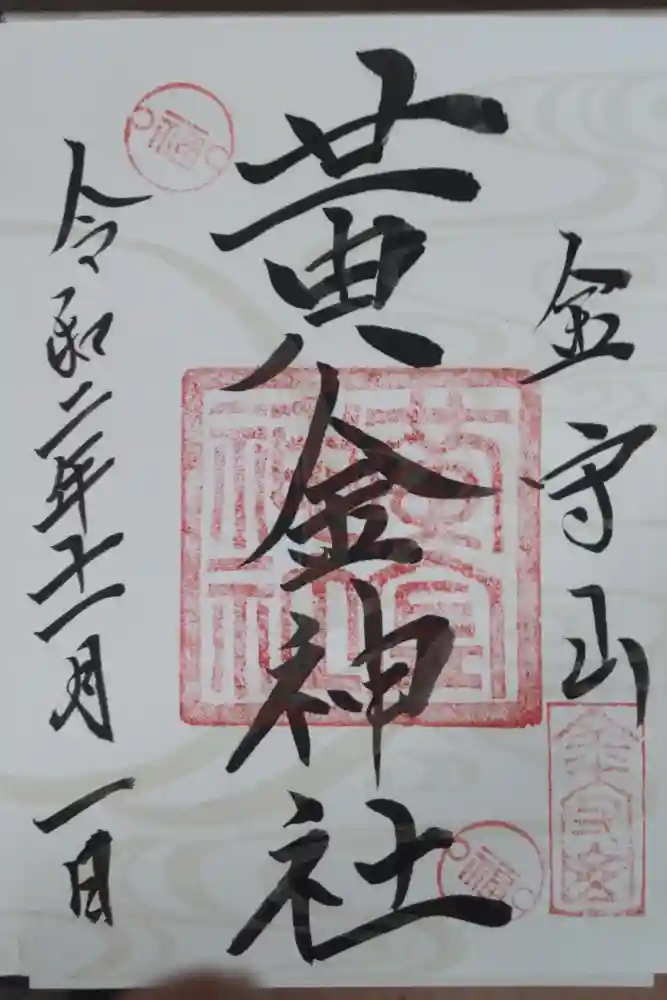 金守山
黄金神社
令和二年十一月一日
福
福
黄金神社